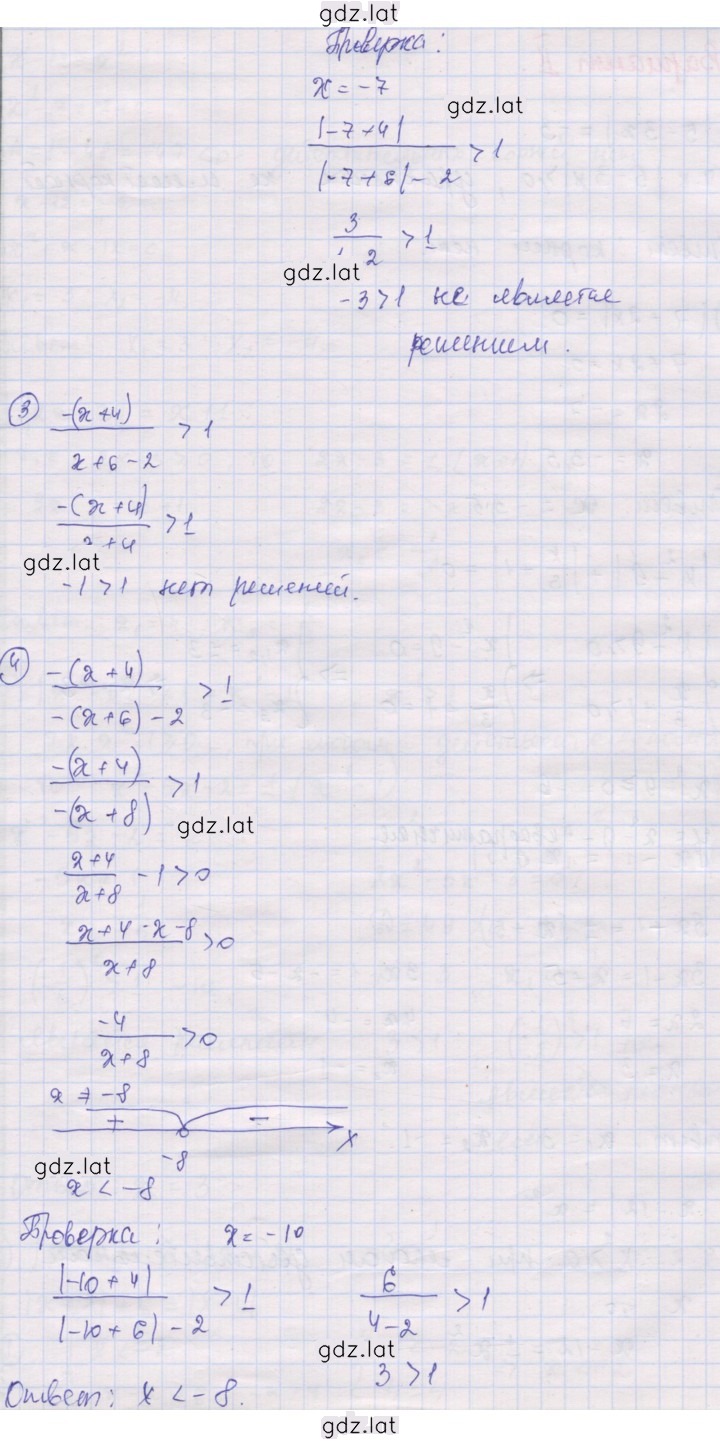 gdz.lat
Проверка:
x = -7
gdz.lat
|-7+4| / |-7+6|-2 > 1
3 / 2 > 1
gdz.lat
-3>1 не является
решением.
3) -(x+4) / x+6-2 > 1
-(x+4) / x+4 > 1
gdz.lat
-1>1 нет решений.
4) -(x+4) / -(x+6)-2 > 1
-(x+4) / -(x+8) > 1
gdz.lat
x+4 / x+8 - 1 > 0
x+4-x-8 / x+8 > 0
-4 / x+8 > 0
x ≠ -8
+ -
x
-8
gdz.lat
x < -8
Проверка: x = -10
|-10+4| / |-10+6|-2 > 1 6 / 4-2 > 1
gdz.lat
3 > 1
Ответ: x < -8.
gdz.lat